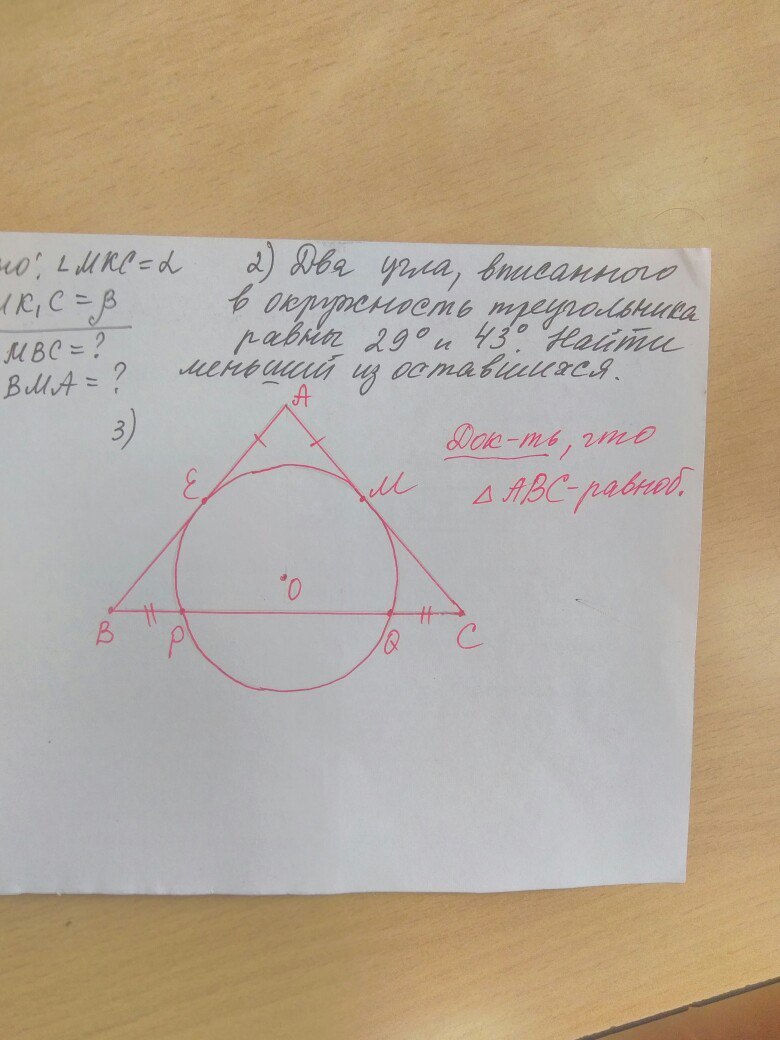 но: ∠MKC=α
MK₁C=β
MBC=?
BMA=?
2) Два угла, вписанного
в окружность треугольника
равны 29° и 43°. Найти
меньший из оставшихся.
3)
A
Док-ть, что
△ABC-равноб.
E
M
O
B
P
Q
C